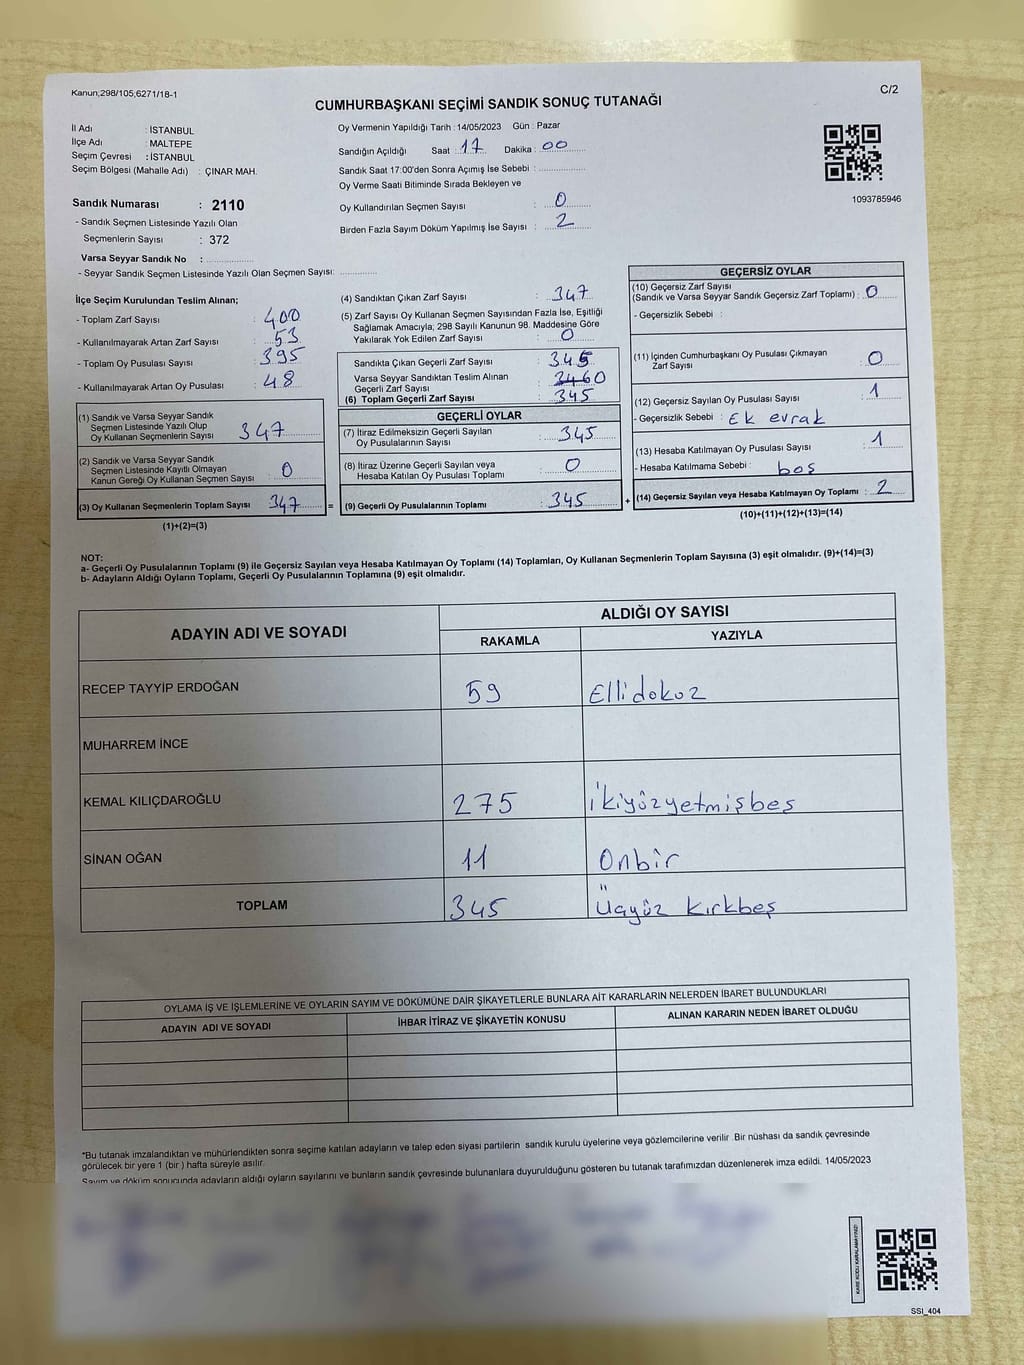 Kanun;298/105,6271/18-1
C/2
CUMHURBAŞKANI SEÇİMİ SANDIK SONUÇ TUTANAĞI
İl Adı : İSTANBUL
İlçe Adı : MALTEPE
Seçim Çevresi : İSTANBUL
Seçim Bölgesi (Mahalle Adı) : ÇINAR MAH.
Sandık Numarası : 2110
- Sandık Seçmen Listesinde Yazılı Olan
Seçmenlerin Sayısı : 372
Varsa Seyyar Sandık No :
- Seyyar Sandık Seçmen Listesinde Yazılı Olan Seçmen Sayısı:
Oy Vermenin Yapıldığı Tarih : 14/05/2023 Gün : Pazar
Sandığın Açıldığı Saat : 17 Dakika : 00
Sandık Saat 17:00'den Sonra Açımış İse Sebebi :
Oy Verme Saati Bitiminde Sırada Bekleyen ve
Oy Kullandırılan Seçmen Sayısı : 0
Birden Fazla Sayım Döküm Yapılmış İse Sayısı : 2
1093785946
İlçe Seçim Kurulundan Teslim Alınan;
- Toplam Zarf Sayısı : 400
- Kullanılmayarak Artan Zarf Sayısı : 53
- Toplam Oy Pusulası Sayısı : 395
- Kullanılmayarak Artan Oy Pusulası : 48
(1) Sandık ve Varsa Seyyar Sandık
Seçmen Listesinde Yazılı Olup
Oy Kullanan Seçmenlerin Sayısı 347
(2) Sandık ve Varsa Seyyar Sandık
Seçmen Listesinde Kayıtlı Olmayan
Kanun Gereği Oy Kullanan Seçmen Sayısı : 0
(3) Oy Kullanan Seçmenlerin Toplam Sayısı 347 =
(1)+(2)=(3)
(4) Sandıktan Çıkan Zarf Sayısı : 347
(5) Zarf Sayısı Oy Kullanan Seçmen Sayısından Fazla İse, Eşitliği
Sağlamak Amacıyla; 298 Sayılı Kanunun 98. Maddesine Göre
Yakılarak Yok Edilen Zarf Sayısı : 0
Sandıkta Çıkan Geçerli Zarf Sayısı : 345
Varsa Seyyar Sandıktan Teslim Alınan
Geçerli Zarf Sayısı : 0
(6) Toplam Geçerli Zarf Sayısı : 345
GEÇERLİ OYLAR
(7) İtiraz Edilmeksizin Geçerli Sayılan
Oy Pusulalarının Sayısı : 345
(8) İtiraz Üzerine Geçerli Sayılan veya
Hesaba Katılan Oy Pusulası Toplamı : 0
(9) Geçerli Oy Pusulalarının Toplamı : 345 +
GEÇERSİZ OYLAR
(10) Geçersiz Zarf Sayısı
(Sandık ve Varsa Seyyar Sandık Geçersiz Zarf Toplamı) : 0
- Geçersizlik Sebebi :
(11) İçinden Cumhurbaşkanı Oy Pusulası Çıkmayan
Zarf Sayısı : 0
(12) Geçersiz Sayılan Oy Pusulası Sayısı : 1
- Geçersizlik Sebebi : Ek evrak
(13) Hesaba Katılmayan Oy Pusulası Sayısı : 1
- Hesaba Katılmama Sebebi : boş
(14) Geçersiz Sayılan veya Hesaba Katılmayan Oy Toplamı : 2
(10)+(11)+(12)+(13)=(14)
NOT:
a- Geçerli Oy Pusulalarının Toplamı (9) ile Geçersiz Sayılan veya Hesaba Katılmayan Oy Toplamı (14) Toplamları, Oy Kullanan Seçmenlerin Toplam Sayısına (3) eşit olmalıdır. (9)+(14)=(3)
b- Adayların Aldığı Oyların Toplamı, Geçerli Oy Pusulalarının Toplamına (9) eşit olmalıdır.
ADAYIN ADI VE SOYADI
ALDIĞI OY SAYISI
RAKAMLA YAZIYLA
RECEP TAYYİP ERDOĞAN 59 Ellidokuz
MUHARREM İNCE
KEMAL KILIÇDAROĞLU 275 ikiyüzyetmişbeş
SİNAN OĞAN 11 Onbir
TOPLAM 345 Üçyüz kırkbeş
OYLAMA İŞ VE İŞLEMLERİNE VE OYLARIN SAYIM VE DÖKÜMÜNE DAİR ŞİKAYETLERLE BUNLARA AİT KARARLARIN NELERDEN İBARET BULUNDUKLARI
ADAYIN ADI VE SOYADI İHBAR İTİRAZ VE ŞİKAYETİN KONUSU ALINAN KARARIN NEDEN İBARET OLDUĞU
*Bu tutanak imzalandıktan ve mühürlendikten sonra seçime katılan adayların ve talep eden siyasi partilerin sandık kurulu üyelerine veya gözlemcilerine verilir .Bir nüshası da sandık çevresinde
görülecek bir yere 1 (bir ) hafta süreyle asılır.
Sayım ve döküm sonucunda adayların aldığı oyların sayılarını ve bunların sandık çevresinde bulunanlara duyurulduğunu gösteren bu tutanak tarafımızdan düzenlenerek imza edildi. 14/05/2023
KARE KODU KARALAMAYINIZ!
SSI_404